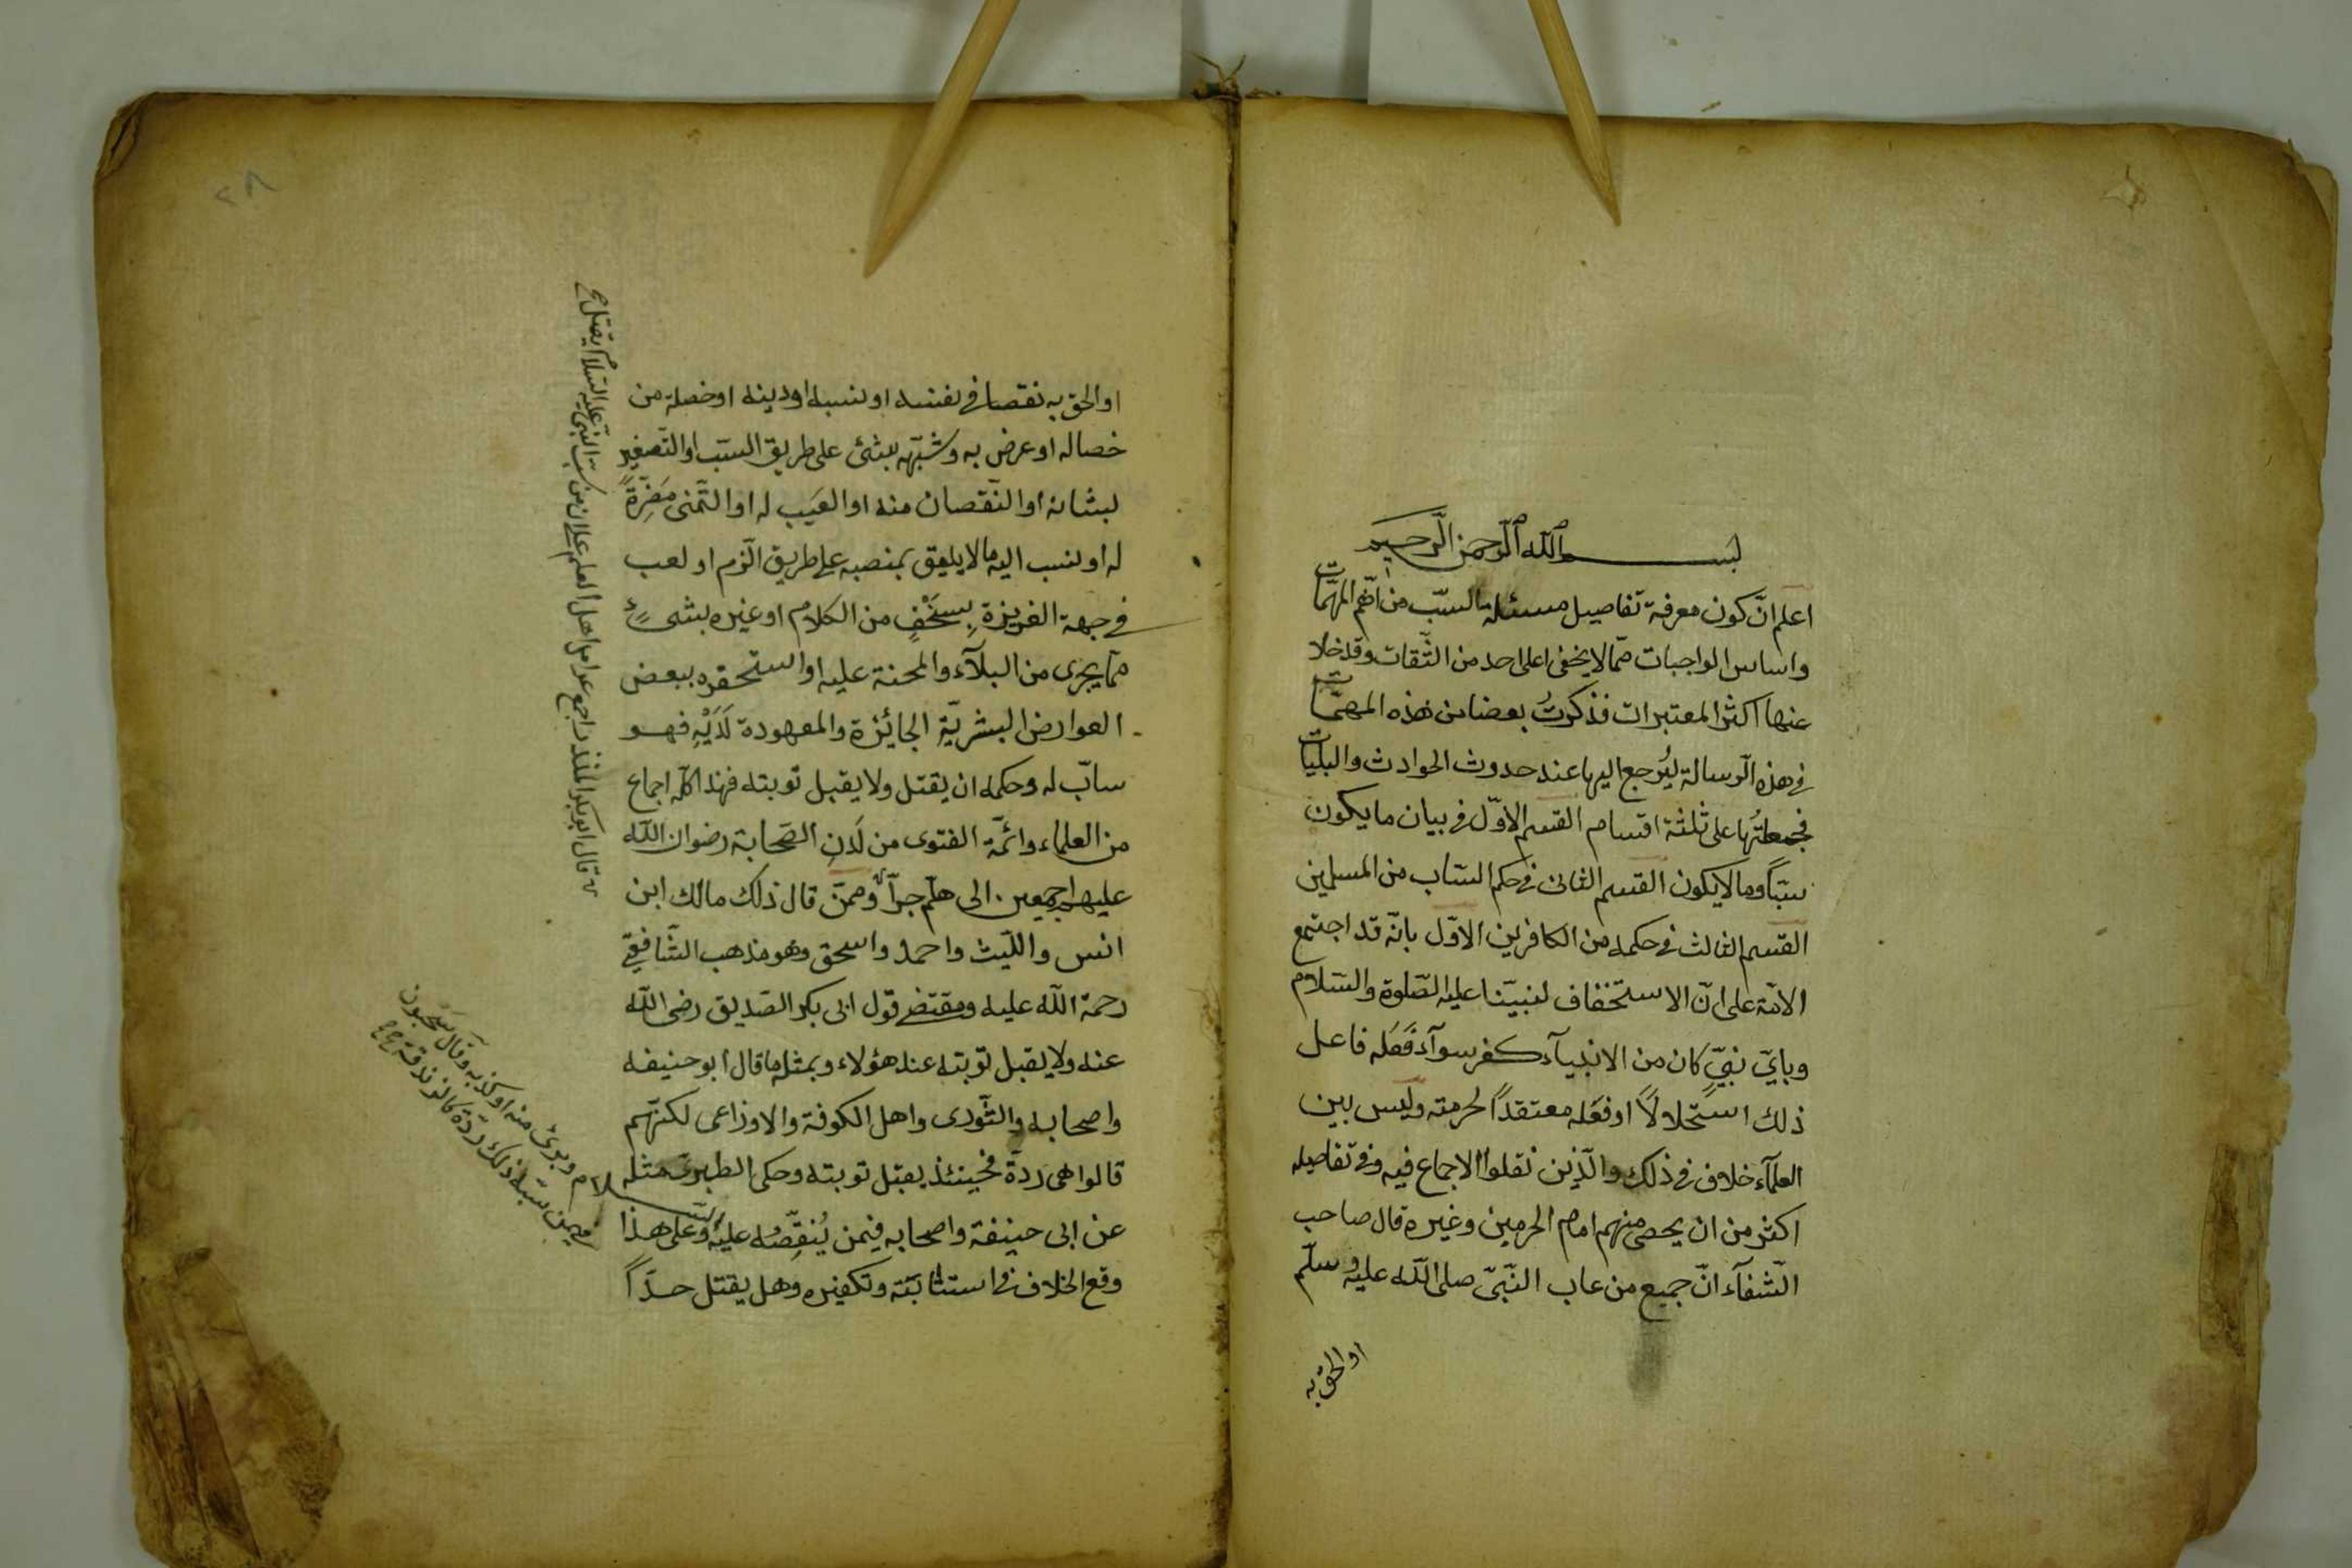 بسم الله الرحمن الرحيم
اعلم انّ كون معرفة تفاصيل مسئلة السّبّ من اهّم المهمّات
واساس الواجبات ممّا لا يخفى على احد من الثّقات وقد خلا
عنها اكثر المعتبرات فذكرتُ بعضا من هذه المهمّات
فى هذه الرّسالة ليُرجع اليها عند حدوث الحوادث والبليّات
فجمعتُها على ثلثة اقسام القسم الاوّل فى بيان ما يكون
سبّاً وما لا يكون القسم الثانى فى حكم السّاب من المسلمين
القسم الثالث فى حكمه من الكافرين الاوّل بانّه قد اجتمع
الامّة على انّ الاستخفاف لنبيّنا عليه الصّلوة والسّلام
وباىّ نبىّ كان من الانبيآء كفر سوآء فعَله فاعل
ذلك استحلالاً او فعَله معتقداً لحرمته وليس بين
العلمآء خلاف فى ذلك والّذين نقلوا الاجماع فيه وفى تفاصيله
اكثر من ان يحصى منهم امام الحرمين وغيره قال صاحب
الشّفآء انّ جميع من عاب النّبىّ صلى اللّه عليه وسلّم
او الحق به
٢٨
او الحق به نقصا فى نفسه او نسبه او دينه او خصلة من
خصاله او عرض به وشبّهه بشئ على طريق السّبّ او التّصغير
لشانه او النّقصان منه او العَيب له او التّمنى مَضَرّةً
له او نسب اليه ما لا يليق بمنصبه على طريق الذّم او لعب
فى جهة الغريزةِ بِسَخْفٍ من الكلام او غيره بشىءٍ
ممّا يجرى من البلآء والمحنة عليه او استحقره ببعض
العوارض البشريّة الجائزة والمعهودة لَدَيْهِ فهو
سابّ له وحكمه ان يقتل ولا يقبل توبته فهذا كلّه اجماع
من العلماء وائمّة الفتوى من لَدنِ الصّحابة رضوان اللّه
عليهم اجمعين الى هلّم جرّاً وممّن قال ذلك مالك ابن
انس واللّيث واحمد واسحق وهو مذهب الشّافعىّ
رحمة اللّه عليه ومقتضى قول ابى بكر الصّديق رضى اللّه
عنه ولا يقبل توبته عند هؤلاء وبمثله ما قال ابو حنيفه
واصحابه والثّورى واهل الكوفة والاوزاعى لكنّهم
قالوا هى ردّة فحينئذ يقبل توبته وحكى الطبرىّ مثله
عن ابى حنيفة واصحابه فيمن يُنقّصُه عليه السّلام وبرئ منه او كذبه وقال سحنون
فيمن سبّه ذلك ردّة كالزندقة
وعلى هذا
وقع الخلاف فى استتابته وتكفيره وهل يقتل حدّاً
قال ابو بكر المنذر اجمع عوام اهل العلم على ان من سبّ النبىّ عليه السّلام يقتل